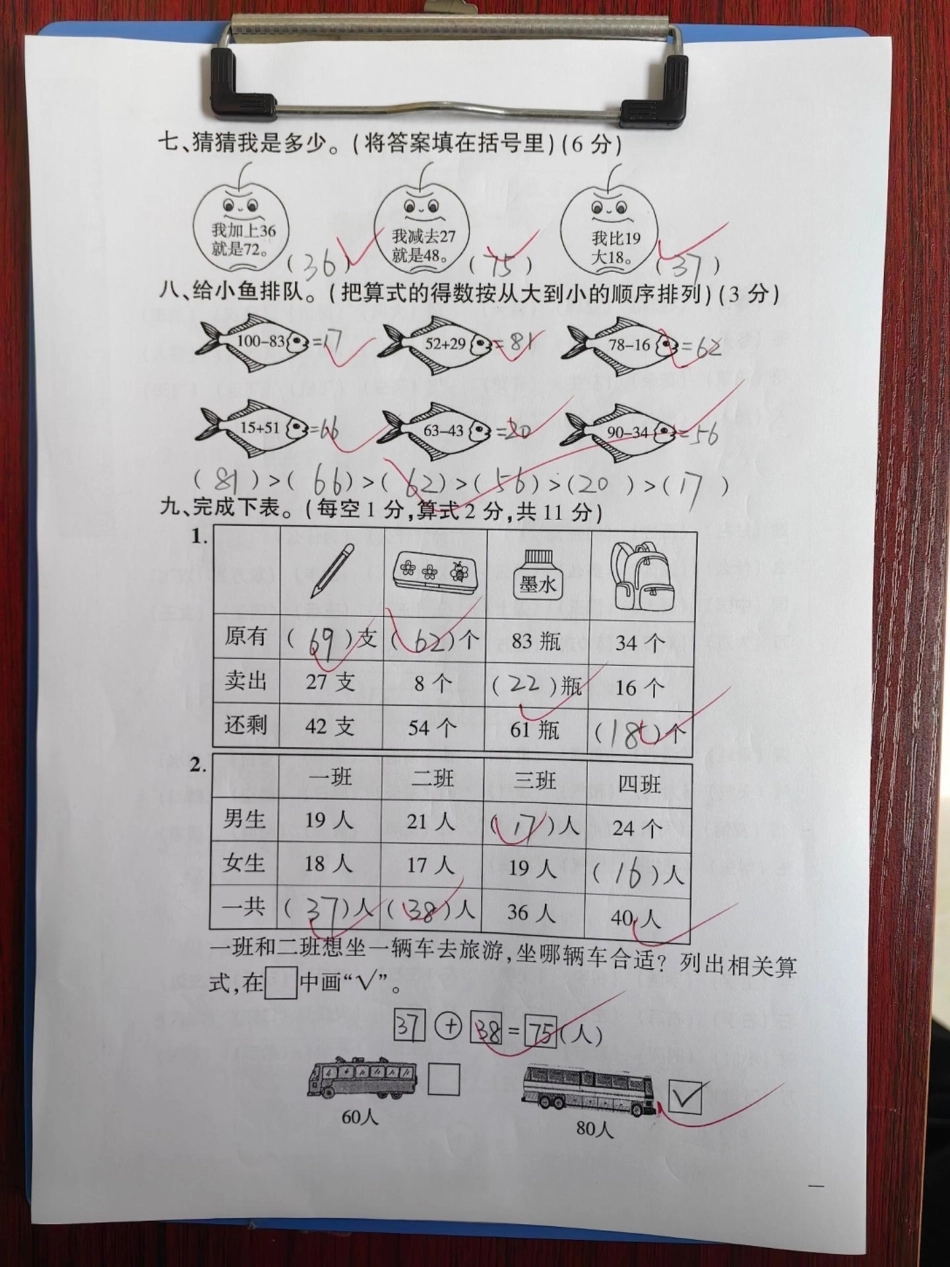 七、猜猜我是多少。(将答案填在括号里)(6分)
我加上36 我减去27 我比19
就是72。 就是48。 大18。
(36) (75) (37)
八、给小鱼排队。(把算式的得数按从大到小的顺序排列)(3分)
100-83=17 52+29=81 78-16=62
15+51=66 63-43=20 90-34=56
(81)>(66)>(62)>(56)>(20)>(17)
九、完成下表。(每空1分,算式2分,共11分)
1.
墨水
原有 (69)支 (62)个 83瓶 34个
卖出 27支 8个 (22)瓶 16个
还剩 42支 54个 61瓶 (18)个
2.
一班 二班 三班 四班
男生 19人 21人 (17)人 24个
女生 18人 17人 19人 (16)人
一共 (37)人 (38)人 36人 40人
一班和二班想坐一辆车去旅游,坐哪辆车合适?列出相关算
式,在□中画“√”。
37+38=75(人)
60人 80人 ✓
一